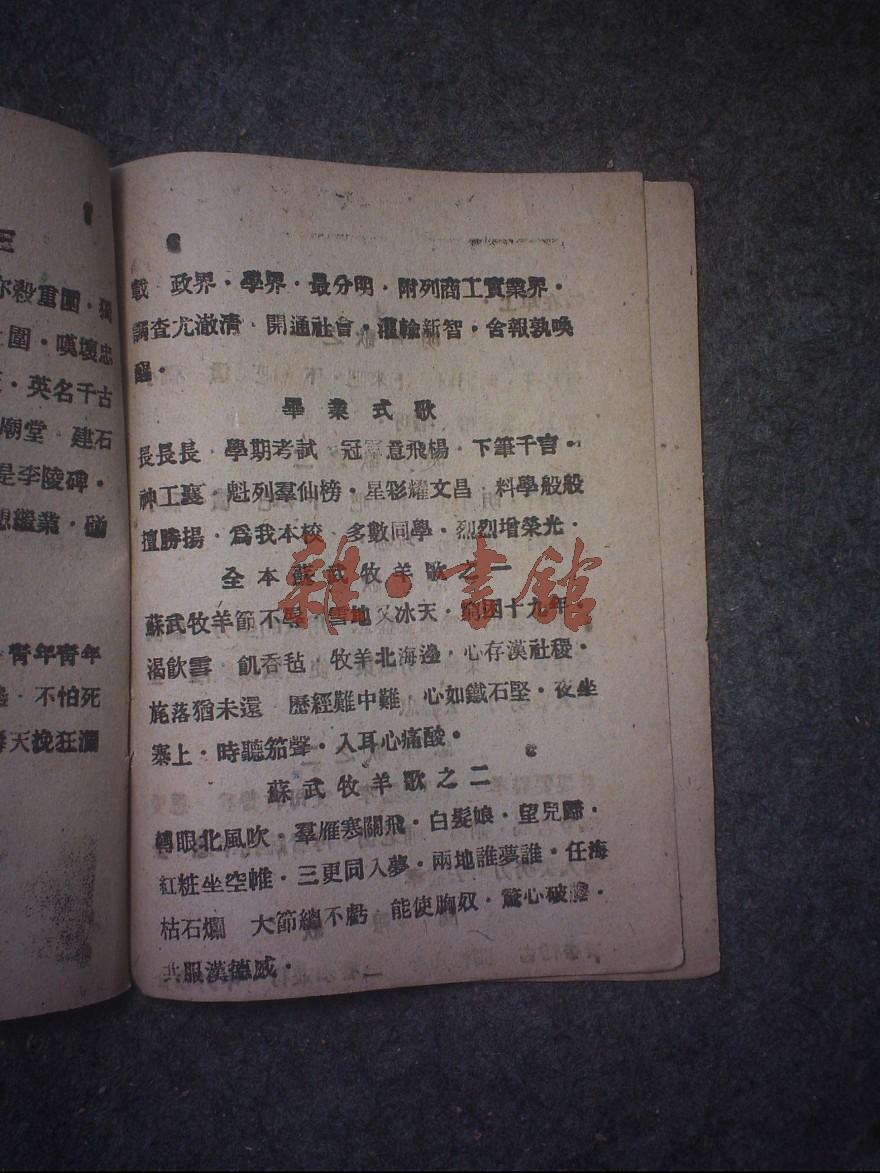 三
亦殺重圍·獨
圍·嘆壞忠
·英名千古
廟堂 建石
是李陵碑·
想繼業·碰
青年青年
不怕死
天挽狂瀾
6
載 政界·學界·最分明·附列商工實業界·
調查尤澈清·開通社會·灌輸新智·舍報孰喚
醒·
畢業式歌
長長長·學期考試 冠軍意飛楊·下筆千言·
神工襄·魁列羣仙榜·星彩耀文昌·料學般般
擅勝揚·為我本校·多數同學·烈烈增榮光·
全本蘇武牧羊歌之一
蘇武牧羊節不辱·雪地又冰天·窮困十九年·
渴飲雪 飢吞毡·牧羊北海邊·心存漢社稷·
旄落猶未還 歷經難中難·心如鐵石堅·夜坐
塞上·時聽笳聲·入耳心痛酸·
蘇武牧羊歌之二
轉眼北風吹·羣雁塞關飛·白髮娘·望兒歸·
紅粧坐空帷·三更同入夢·兩地誰夢誰·任海
枯石爛 大節總不虧 能使胸奴·驚心破膽·
共服漢德威·
雜·書館